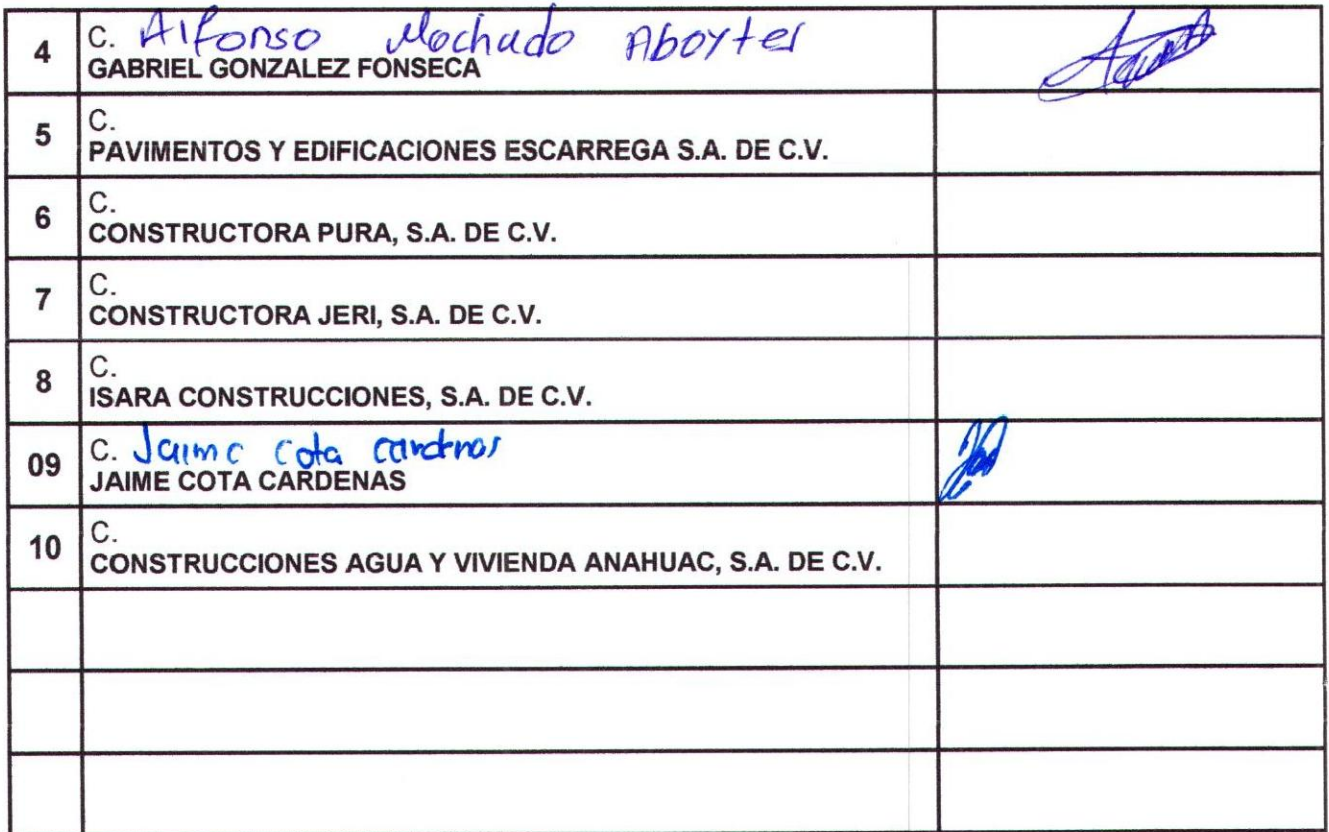 4
C. Alfonso Machado Aboyter
GABRIEL GONZALEZ FONSECA
5
C.
PAVIMENTOS Y EDIFICACIONES ESCARREGA S.A. DE C.V.
6
C.
CONSTRUCTORA PURA, S.A. DE C.V.
7
C.
CONSTRUCTORA JERI, S.A. DE C.V.
8
C.
ISARA CONSTRUCCIONES, S.A. DE C.V.
09
C. Jaime Cota cardenas
JAIME COTA CARDENAS
10
C.
CONSTRUCCIONES AGUA Y VIVIENDA ANAHUAC, S.A. DE C.V.